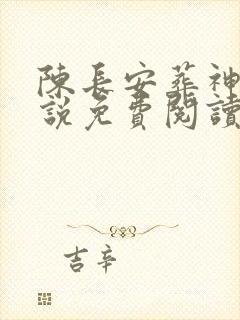 陳長安葬神
說免費閱讀
吉辛